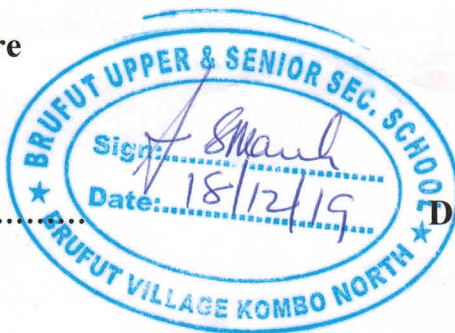 re
BRUFUT UPPER & SENIOR SEC. SCHOOL
Sign:
Date: 18/12/19
D
★ BRUFUT VILLAGE KOMBO NORTH ★